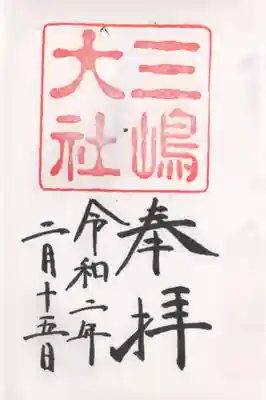 三嶋
大社
奉拝
令和二年
二月十五日